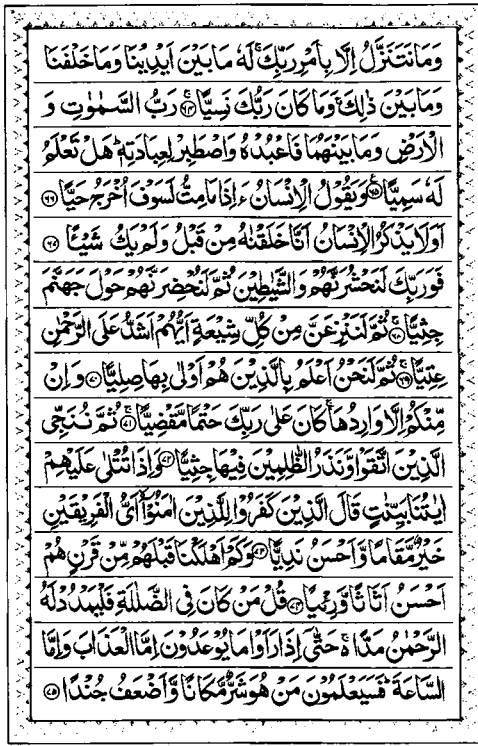 وَمَا نَتَنَزَّلُ اِلَّا بِاَمْرِ رَبِّكَ ۚ لَهٗ مَا بَيْنَ اَيْدِيْنَا وَمَا خَلْفَنَا
وَمَا بَيْنَ ذٰلِكَ ۚ وَمَا كَانَ رَبُّكَ نَسِيًّا ۚ﴿۶۴﴾ رَبُّ السَّمٰوٰتِ وَ
الْاَرْضِ وَمَا بَيْنَهُمَا فَاعْبُدْهُ وَاصْطَبِرْ لِعِبَادَتِهٖ ؕ هَلْ تَعْلَمُ
لَهٗ سَمِيًّا ﴿۶۵﴾ وَيَقُوْلُ الْاِنْسَانُ ءَاِذَا مَا مِتُّ لَسَوْفَ اُخْرَجُ حَيًّا ﴿۶۶﴾
اَوَلَا يَذْكُرُ الْاِنْسَانُ اَنَّا خَلَقْنٰهُ مِنْ قَبْلُ وَلَمْ يَكُ شَيْـًٔا ﴿۶۷﴾
فَوَرَبِّكَ لَنَحْشُرَنَّهُمْ وَالشَّيٰطِيْنَ ثُمَّ لَنُحْضِرَنَّهُمْ حَوْلَ جَهَنَّمَ
جِثِيًّا ۚ﴿۶۸﴾ ثُمَّ لَنَنْزِعَنَّ مِنْ كُلِّ شِيْعَةٍ اَيُّهُمْ اَشَدُّ عَلَى الرَّحْمٰنِ
عِتِيًّا ۚ﴿۶۹﴾ ثُمَّ لَنَحْنُ اَعْلَمُ بِالَّذِيْنَ هُمْ اَوْلٰى بِهَا صِلِيًّا ﴿۷۰﴾ وَاِنْ
مِّنْكُمْ اِلَّا وَارِدُهَا ۚ كَانَ عَلٰى رَبِّكَ حَتْمًا مَّقْضِيًّا ۚ﴿۷۱﴾ ثُمَّ نُنَجِّى
الَّذِيْنَ اتَّقَوْا وَّنَذَرُ الظّٰلِمِيْنَ فِيْهَا جِثِيًّا ﴿۷۲﴾ وَاِذَا تُتْلٰى عَلَيْهِمْ
اٰيٰتُنَا بَيِّنٰتٍ قَالَ الَّذِيْنَ كَفَرُوْا لِلَّذِيْنَ اٰمَنُوْۤا اَىُّ الْفَرِيْقَيْنِ
خَيْرٌ مَّقَامًا وَّاَحْسَنُ نَدِيًّا ﴿۷۳﴾ وَكَمْ اَهْلَكْنَا قَبْلَهُمْ مِّنْ قَرْنٍ هُمْ
اَحْسَنُ اَثَاثًا وَّرِءْيًا ﴿۷۴﴾ قُلْ مَنْ كَانَ فِى الضَّلٰلَةِ فَلْيَمْدُدْ لَهُ
الرَّحْمٰنُ مَدًّا ۚ حَتّٰٓى اِذَا رَاَوْا مَا يُوْعَدُوْنَ اِمَّا الْعَذَابَ وَاِمَّا
السَّاعَةَ ؕ فَسَيَعْلَمُوْنَ مَنْ هُوَ شَرٌّ مَّكَانًا وَّاَضْعَفُ جُنْدًا ﴿۷۵﴾